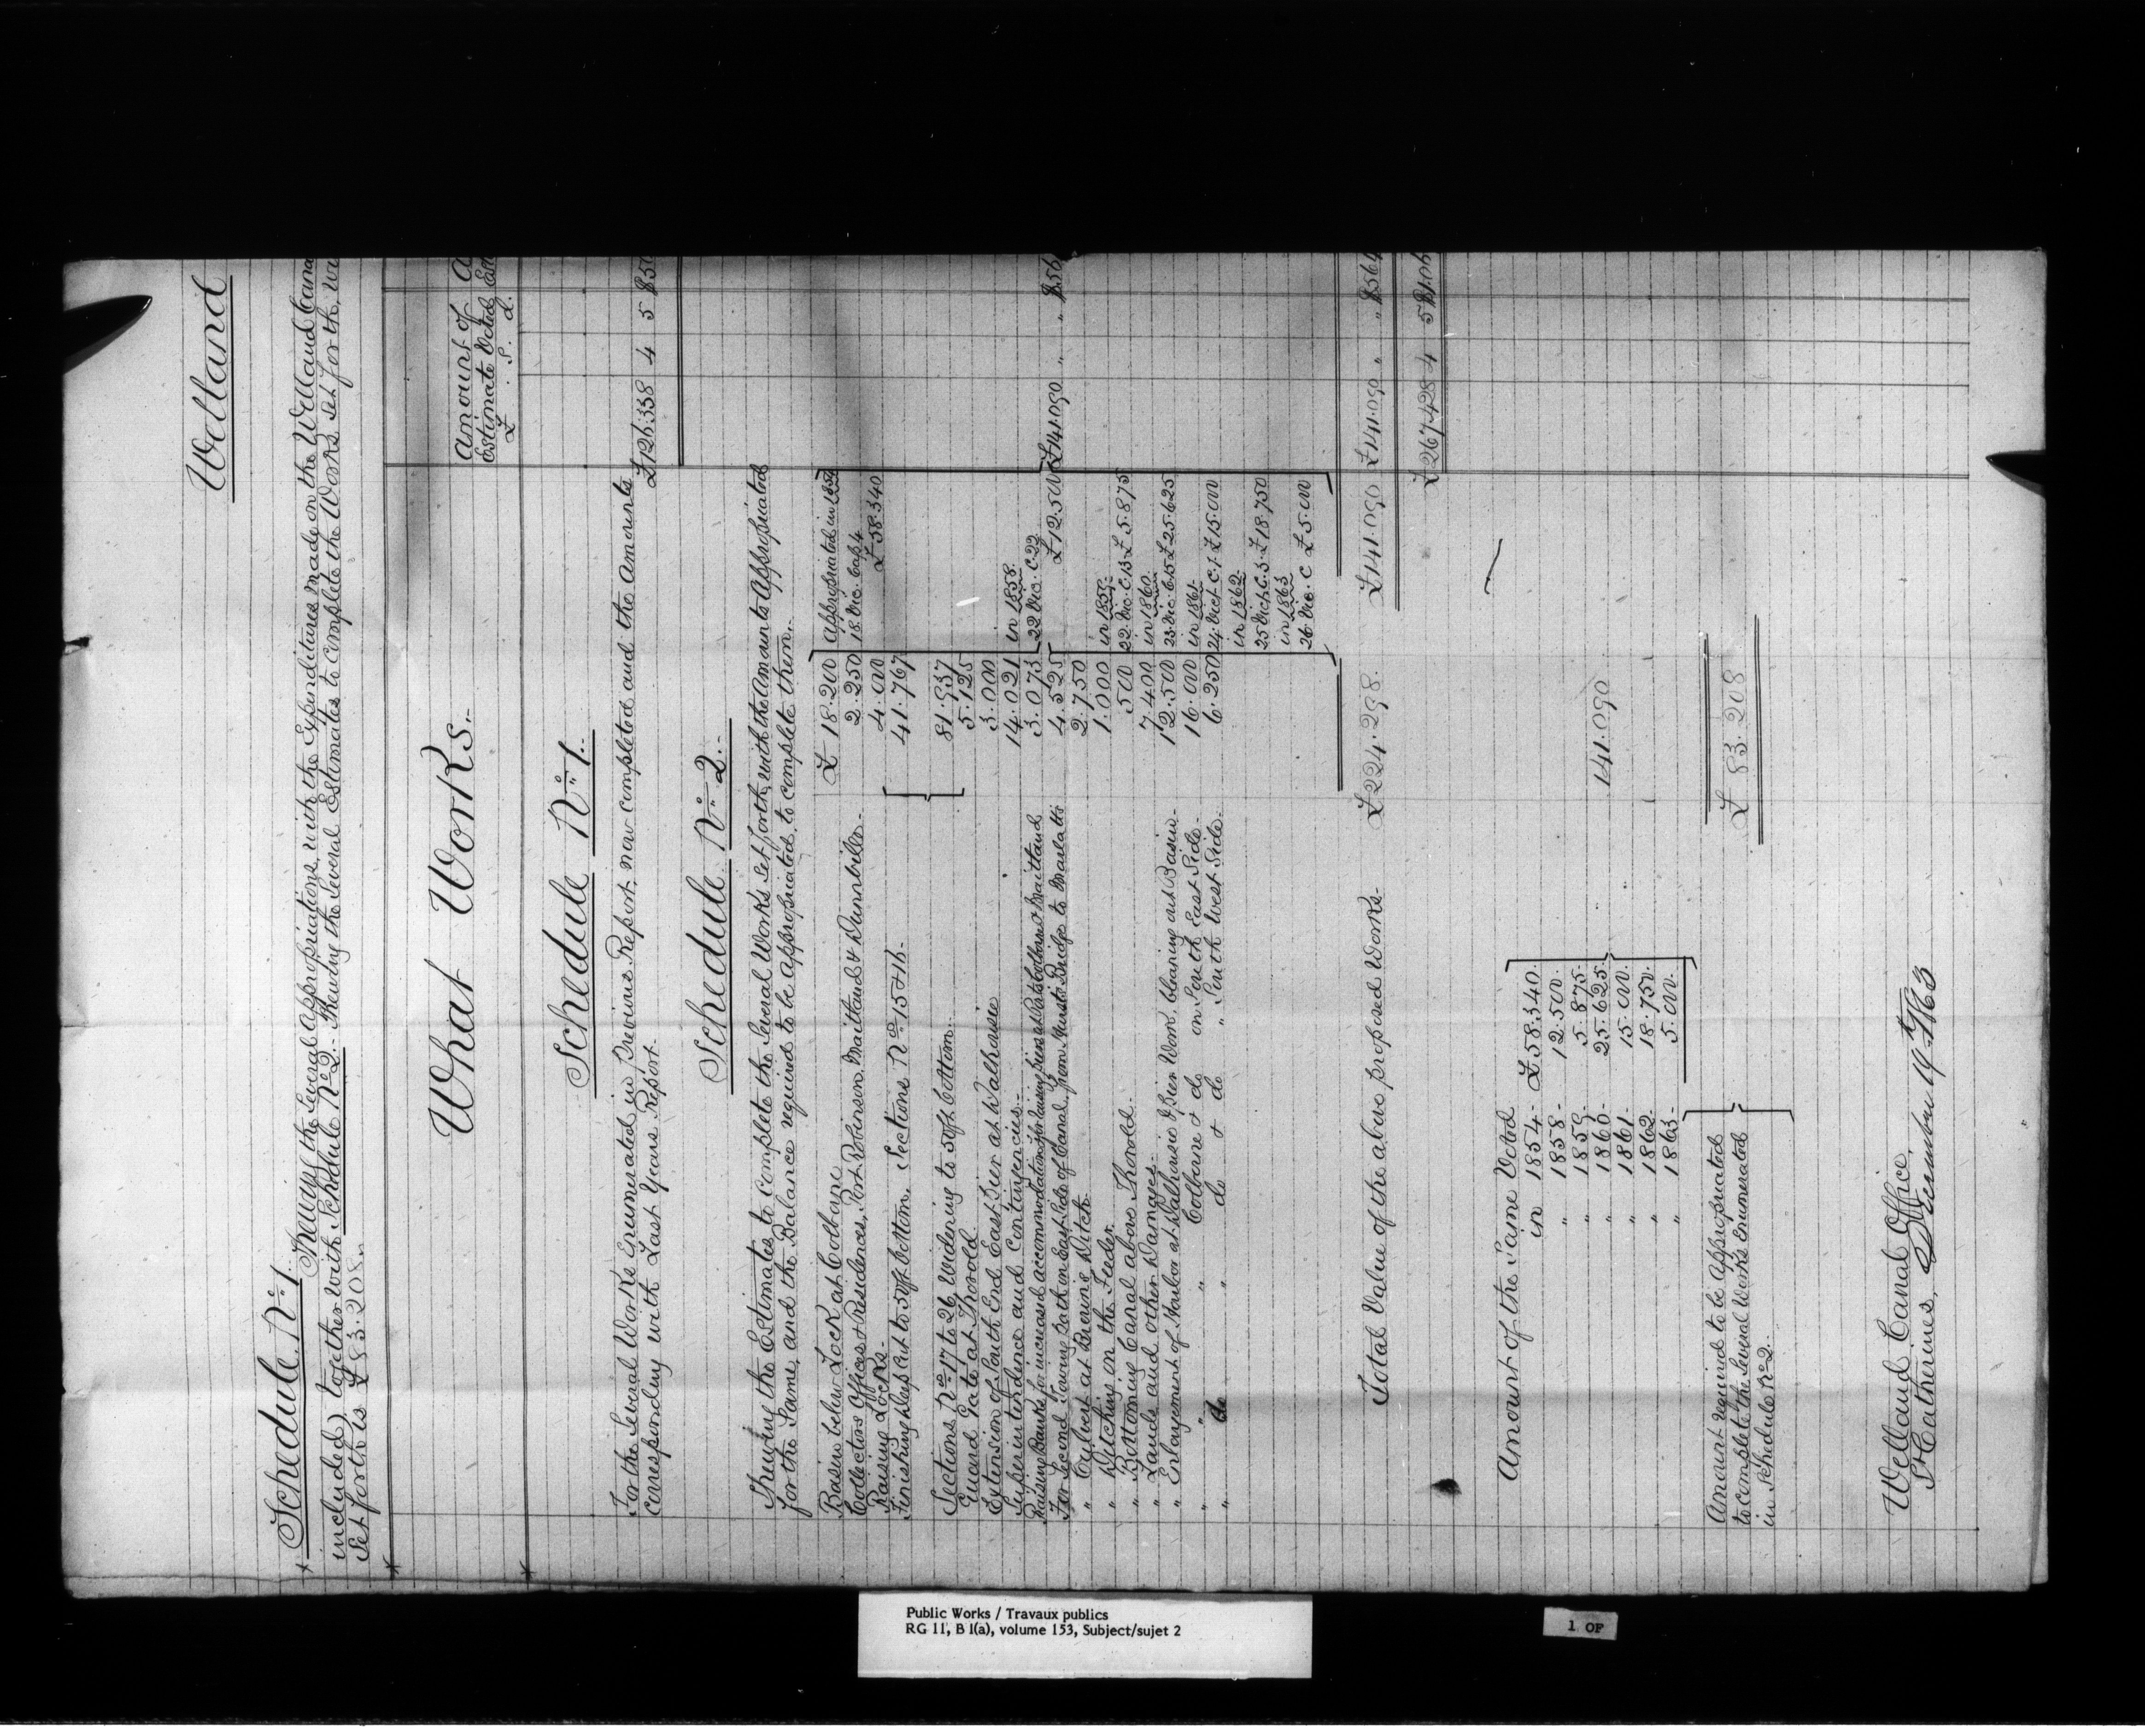 Welland
Schedule No. 1. Shewing the Several appropriations, with the Expenditures made on the Welland Cana
included), together with Schedule No. 2. Shewing the Several Estimates to Complete the Works set forth, wi
Set forth is £83.208.
What Works.
Amount of
Estimate Voted
£. s. d.
Schedule No. 1.
For the Several Works Enumerated in Previous Report, now completed and the Amounts
corresponding with Last Years Report.
£126.338 4 5
Schedule No. 2.
Shewing the Estimates to Complete the Several Works Set forth, with the Amounts Appropriated
for the Same, and the Balance required to be appropriated, to complete them.
Basin below Lock at Colborne £ 18.200 Appropriated in 1854
Collectors Offices & Residences, Port Robinson, Maitland & Dunnville. 2.250 18 Vic. Cap 4
Raising Locks. 4.000 £58.340
Finishing Deep Cut to 50ft bottom. Sections Nos. 15 & 16. 41.767
Sections Nos. 17 to 26 Widening to 50ft bottom. 81.937
Guard Gate at Thorold 5.125
Extension of South End East Pier at Dalhousie 3.000
Superintendence and Contingencies. 14.021 in 1858.
Raising Banks for increased accommodation & for raising piers at Ports Colborne & Maitland 3.073 22 Vic. C.22
For Second Towing Path on East Side of Canal, from Bridge to Marlatts 4.525 £12.500 £141.090 " "
" Culvert at Browns Ditch. 2.750
" Ditching on the Feeder. 1.000 in 1859.
" Bottoming Canal above Thorold. 500 22 Vic. C.13 £5.875
" Lands and other Damages. 7.400 in 1860.
" Enlargement of Harbor at Dalhousie & Pier Work, cleaning out Basin. 12.500 23 Vic. C.15 £25.625
" " " Colborne & do on South East Side. 16.000 in 1861.
" do " do & do " South West Side. 6.250 24 Vict C.1. £15.000
in 1862.
25 Vict. C.3. £18.750
in 1863
26 Vic. C £5.000
Total Value of the above proposed Works. £224.298. £141.090 £141.090 " "
£267428 4 5
Amount of the Same Voted
in 1854. £58.340.
" 1858. 12.500.
" 1859. 5.875.
" 1860. 25.625. 141.090
" 1861. 15.000.
" 1862. 18.750.
" 1863. 5.000.
Amount required to be Appropriated
to complete the Several Works Enumerated £ 83.208
in Schedule No. 2.
Welland Canal Office,
St Catherines, December 19th 1863
Public Works / Travaux publics
RG 11, B 1(a), volume 153, Subject/sujet 2
1 OF